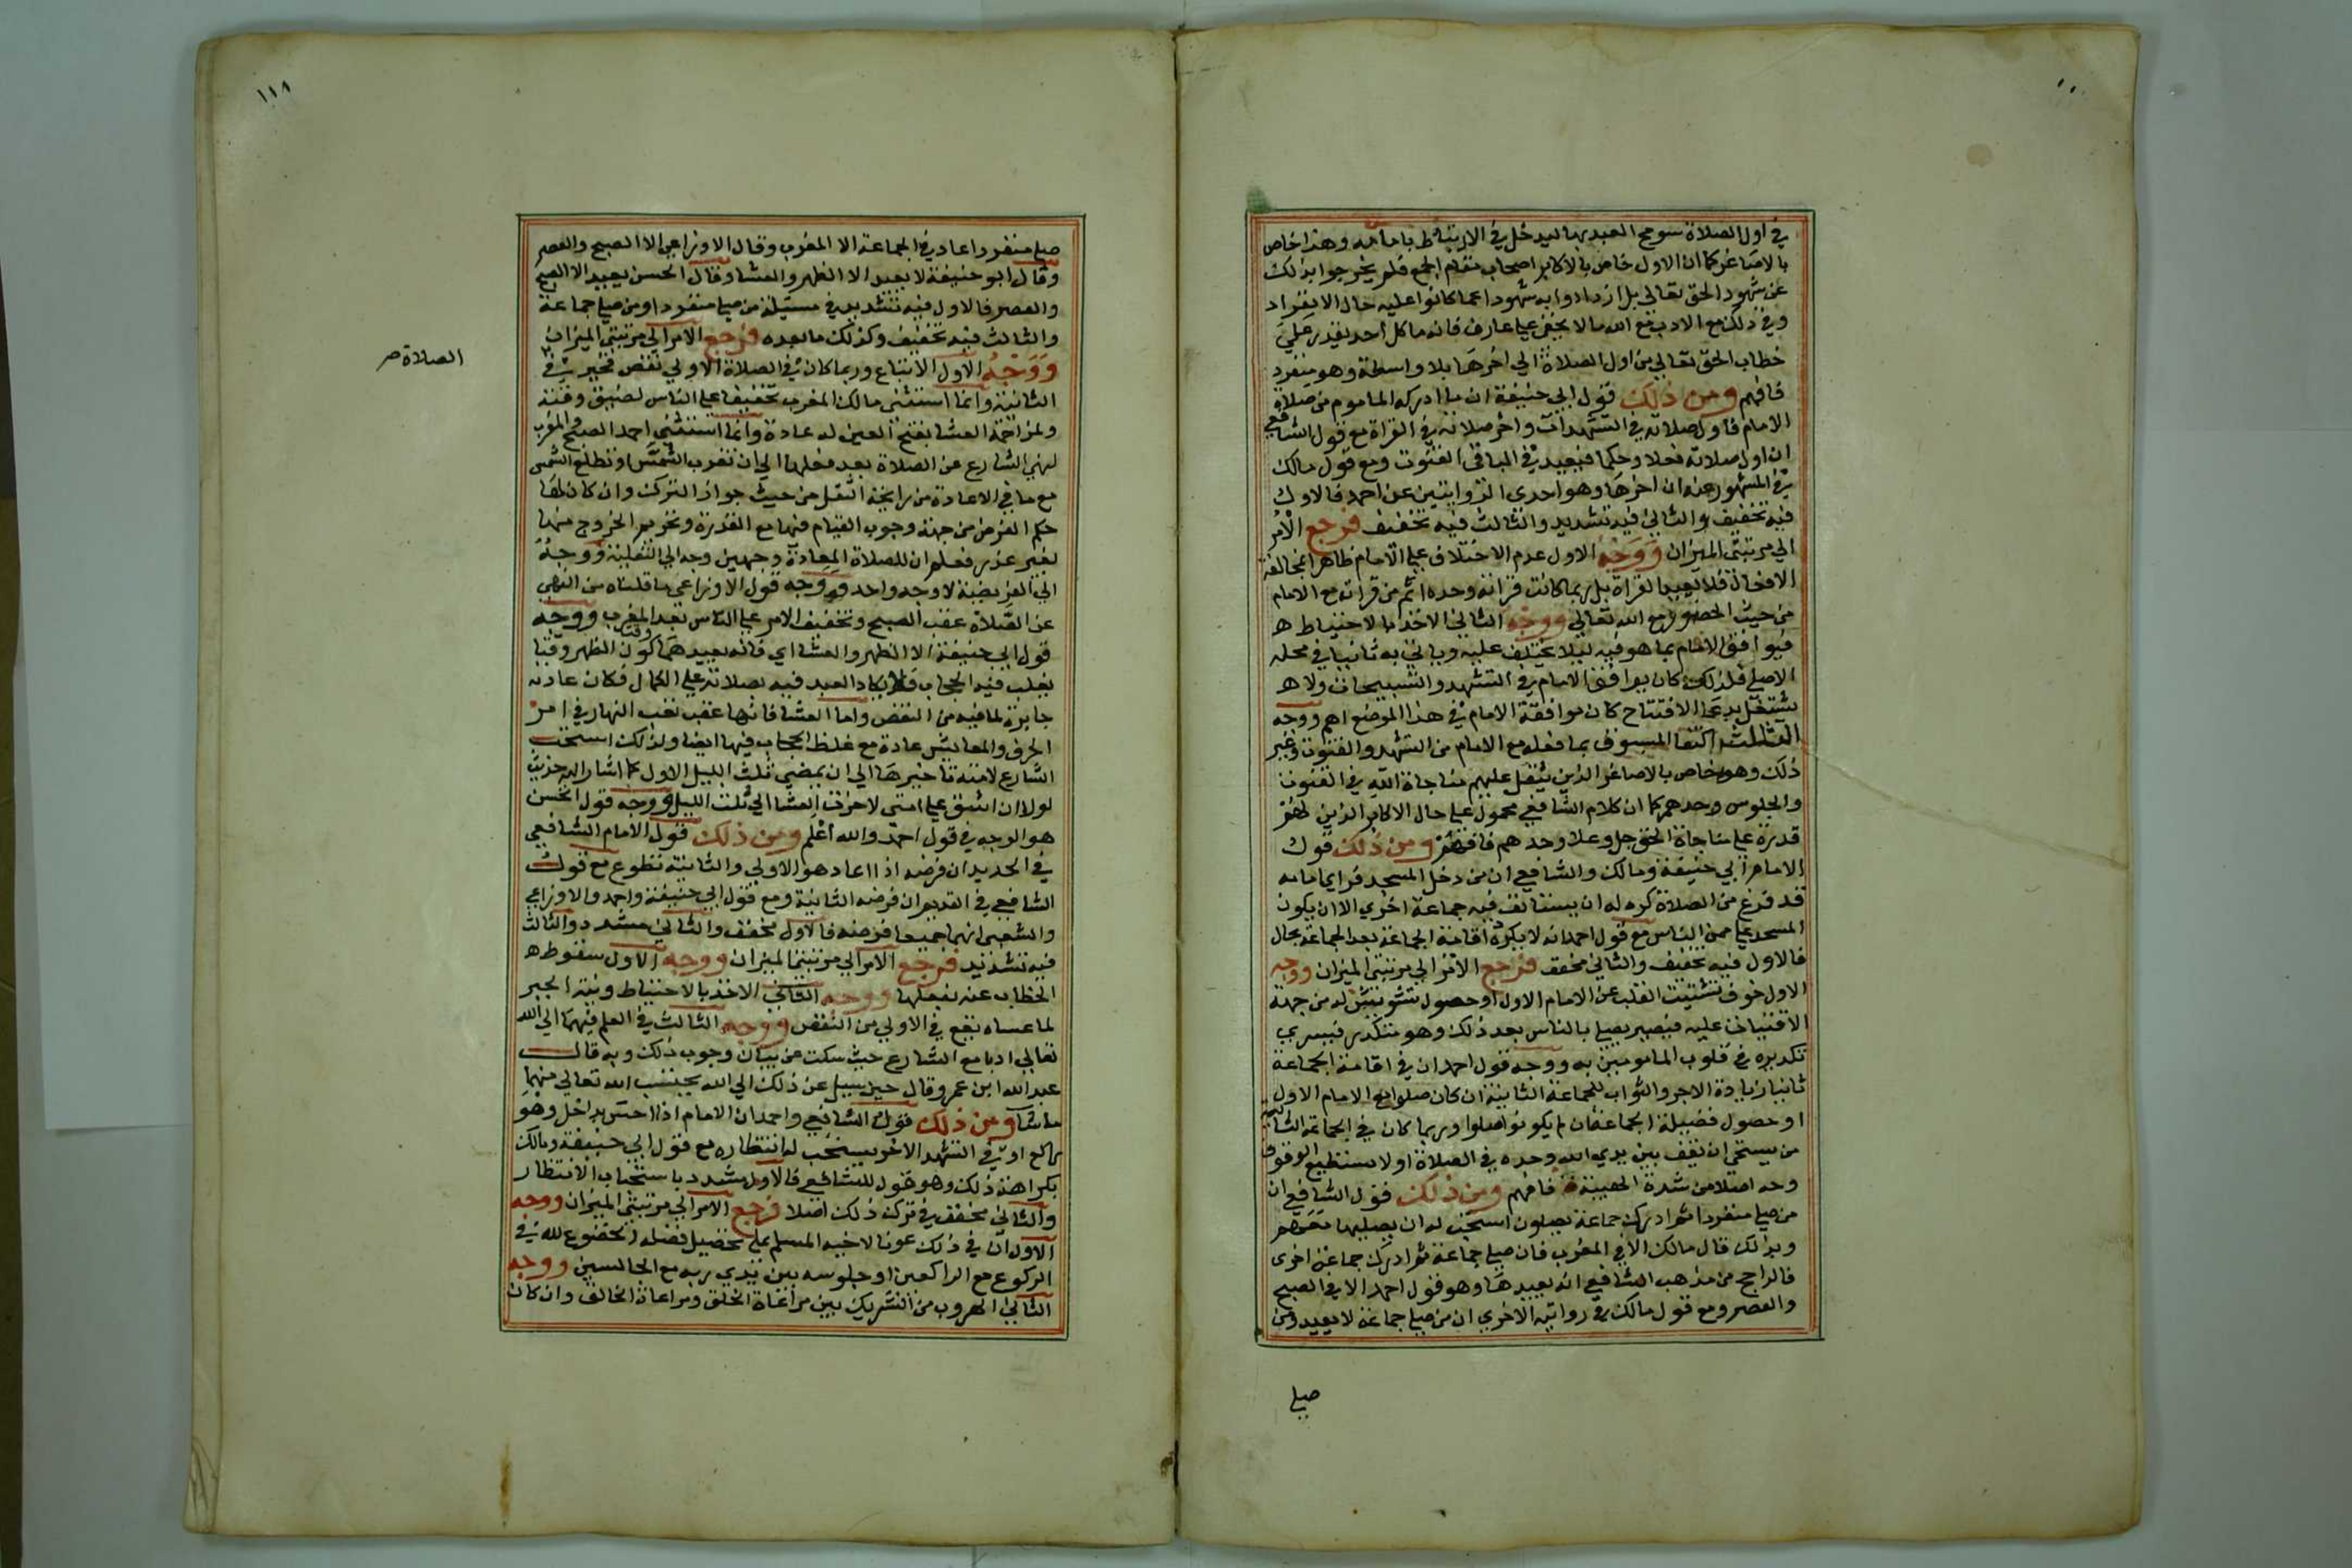 في اول الصلاة سومح العبد بها ليدخل في الارتباط بامامه وهذا خاص
بالاصاغر كما ان الاول خاص بالاكابر اصحاب مقام الجمع فلم يخرجوا بذلك
عن شهود الحق تعالى بل ازدادوا به شهودا عما كانوا عليه حال الانفراد
وفي ذلك مع الادب مع الله ما لا يخفى على عارف فانه ما كل احد يقدر على
خطاب الحق تعالى من اول الصلاة الى اخرها بلا واسطة وهو منفرد
فافهم ومن ذلك قول ابي حنيفة ان ما ادركه الماموم من صلاة
الامام فاول صلاته في التشهدات واخر صلاته في القراة مع قول الشافعي
ان اول صلاته فعلا وحكما فيعيد في الباقي القنوت ومع قول مالك
في المشهور عنه ان اخرها وهو احدى الروايتين عن احمد فالاول
فيه تخفيف والثاني فيه تشديد والثالث فيه تخفيف فرجع الامر
الى مرتبتي الميزان ووجه الاول عدم الاختلاف على الامام ظاهرا بمخالفة
الافعال فلا يعيد القراة بل ربما كانت قراته وحده اتم من قراته مع الامام
من حيث الحضور مع الله تعالى ووجه الثاني الاخذ بالاحتياط
فيوافق الامام بما هو فيه ليلا يختلف عليه وياتي به ثانيا في محله
الاصلي فلذلك كان يوافق الامام في التشهد والتسبيحات ولا
يشتغل بدعا الافتتاح كان موافقة الامام في هذا الموضع اهم ووجه
الثالث اكتفا المسبوق بما فعله مع الامام من التشهد والقنوت وغير
ذلك وهو خاص بالاصاغر الذين يثقل عليهم مناجاة الله في القنوت
والجلوس وحدهم كما ان كلام الشافعي محمول على حال الاكابر الذين لهم
قدرة على مناجاة الحق جل وعلا وحدهم فافهم ومن ذلك قول
الامام ابي حنيفة ومالك والشافعي ان من دخل المسجد فراى امامه
قد فرغ من الصلاة كره له ان يستانف فيه جماعة اخرى الا ان يكون
المسجد على ممر الناس مع قول احمد انه لا يكره اقامة الجماعة بعد الجماعة بحال
فالاول فيه تخفيف والثاني مخفف فرجع الامر الى مرتبتي الميزان ووجه
الاول خوف تشتيت القلب عن الامام الاول او حصول تشويش له من جهة
الافتيات عليه فيصير يصلي بالناس بعد ذلك وهو متكدر فيسري
تكديره في قلوب المامومين به ووجه قول احمد ان في اقامة الجماعة
ثانيا زيادة الاجر والثواب للجماعة الثانية ان كان صلوا مع الامام الاول
او حصول فضيلة الجماعة ان لم يكونوا صلوا وربما كان في الجماعة الثانية
من يستحي ان يقف بين يدي الله وحده في الصلاة او لا يستطيع الوقوف
وحده اصلا من شدة الهيبة فافهم ومن ذلك قول الشافعي ان
من صلى منفردا ثم ادرك جماعة يصلون استحب له ان يصليها معهم
وبذلك قال مالك الا في المغرب فان صلى جماعة ثم ادرك جماعة اخرى
فالراجح من مذهب الشافعي انه يعيدها وهو قول احمد الا في الصبح
والعصر ومع قول مالك في روايته الاخرى ان من صلى جماعة لا يعيد ومن
صلى
١١٨
الصلاة
صلى منفردا اعاد في الجماعة الا المغرب وقال الاوزاعي الا الصبح والعصر
وقال ابو حنيفة لا يعيد الا الظهر والعشا وقال الحسن يعيد الا الصبح
والعصر فالاول فيه تشديد في مسئلة من صلى منفردا او من صلى جماعة
والثالث فيه تخفيف وكذلك ما بعده فرجع الامر الى مرتبتي الميزان
ووجه الاول الاتباع وربما كان في الصلاة الاولى نقص فجبر في
الثانية وانما استثنى مالك المغرب تخفيفا على الناس لضيق وقته
ولمزاحمة العشا بفتح العين له عادة وانما استثنى احمد الصبح والمغرب
لنهي الشارع عن الصلاة بعد فعلها الى ان تغرب الشمس او تطلع الشمس
مع ما في الاعادة من رايحة النفل من حيث جواز الترك وان كان لها
حكم الفرض من جهة وجوب القيام فيها مع القدرة وتحريم الخروج منها
لغير عذر فعلم ان للصلاة المعادة وجهين وجه الى النفلية ووجه
الى الفرضية لا وجه واحد ووجه قول الاوزاعي ما قلناه من النهي
عن الصلاة عقب الصبح وتخفيف الامر على الناس بعد المغرب ووجه
قول ابي حنيفة الا الظهر والعشا اي فانه يعيدهما كون الظهر وقتا
يغلب فيه الحجاب فلا يكاد العبد فيه بصلاته على الكمال فكان عادته
جابرة لما فيه من النقص واما العشا فانها عقب تعب النهار في امر
الحرف والمعايش عادة مع غلظ الحجاب فيها ايضا ولذلك استحب
الشارع لامته تاخيرها الى ان يمضي ثلث الليل الاول كما اشار اليه حديث
لولا ان اشق على امتي لاخرت العشا الى ثلث الليل ووجه قول الحسن
هو الوجه في قول احمد والله اعلم ومن ذلك قول الامام الشافعي
في الجديد ان فرضه اذا اعاد هو الاولى والثانية تطوع مع قول
الشافعي في القديم ان فرضه الثانية ومع قول ابي حنيفة واحمد والاوزاعي
والشعبي انهما جميعا فرضه فالاول مخفف والثاني مشدد والثالث
فيه تشديد فرجع الامر الى مرتبتي الميزان ووجه الاول سقوط
الخطاب عنه بفعلها ووجه الثاني الاخذ بالاحتياط ونية الجبر
لما عساه يقع في الاولى من النقص ووجه الثالث في العلم فيهما الى الله
تعالى ادبا مع الشارع حيث سكت عن بيان وجوب ذلك وبه قال
عبد الله ابن عمر وقال حين سيل عن ذلك الى الله يحتسب الله تعالى منهما
ما شا ومن ذلك قول الشافعي واحمد ان الامام اذا احس بداخل وهو
راكع او في التشهد الاخر يستحب له انتظاره مع قول ابي حنيفة ومالك
بكراهة ذلك وهو قول للشافعي فالاول مشدد باستحباب الانتظار
والثاني مخفف في ترك ذلك اصلا فرجع الامر الى مرتبتي الميزان ووجه
الاول ان في ذلك عونا لاخيه المسلم على تحصيل فضله لخضوع لله في
الركوع مع الراكعين او جلوسه بين يدي ربه مع الجالسين ووجه
الثاني الهروب من التشريك بين مراعاة الخلق ومراعاة الخالق وان كان